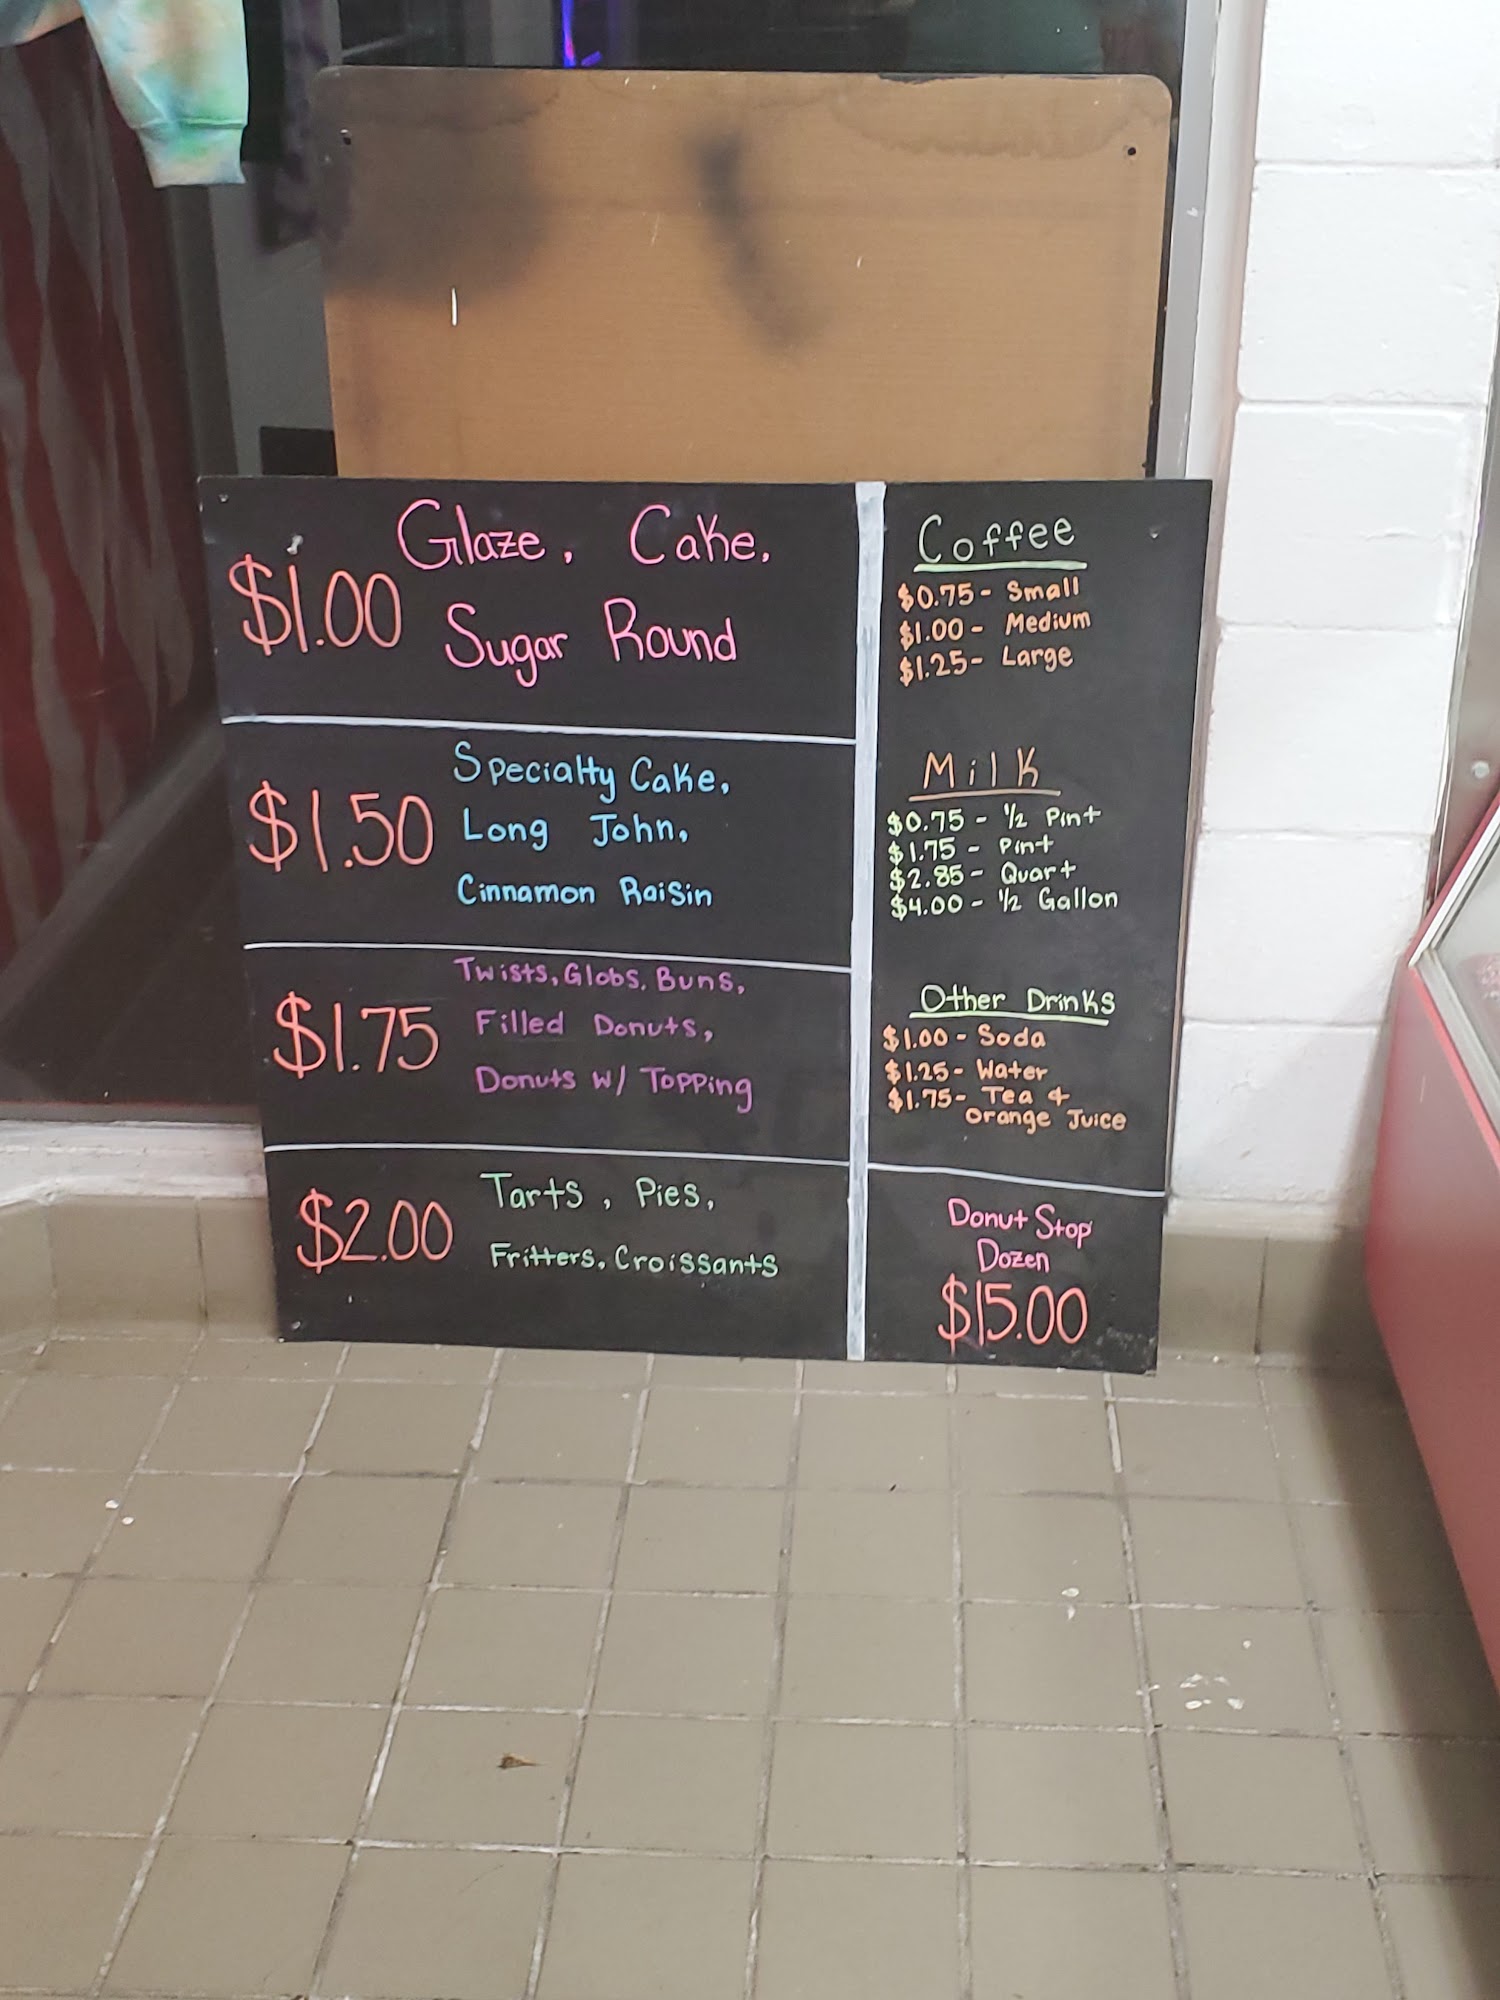 $1.00
Glaze, Cake,
Sugar Round
$1.50
Specialty Cake,
Long John,
Cinnamon Raisin
$1.75
Twists, Globs, Buns,
Filled Donuts,
Donuts w/ Topping
$2.00
Tarts, Pies,
Fritters, Croissants
Coffee
$0.75 - Small
$1.00 - Medium
$1.25 - Large
Milk
$0.75 - 1/2 Pint
$1.75 - Pint
$2.85 - Quart
$4.00 - 1/2 Gallon
Other Drinks
$1.00 - Soda
$1.25 - Water
$1.75 - Tea &
Orange Juice
Donut Stop
Dozen
$15.00